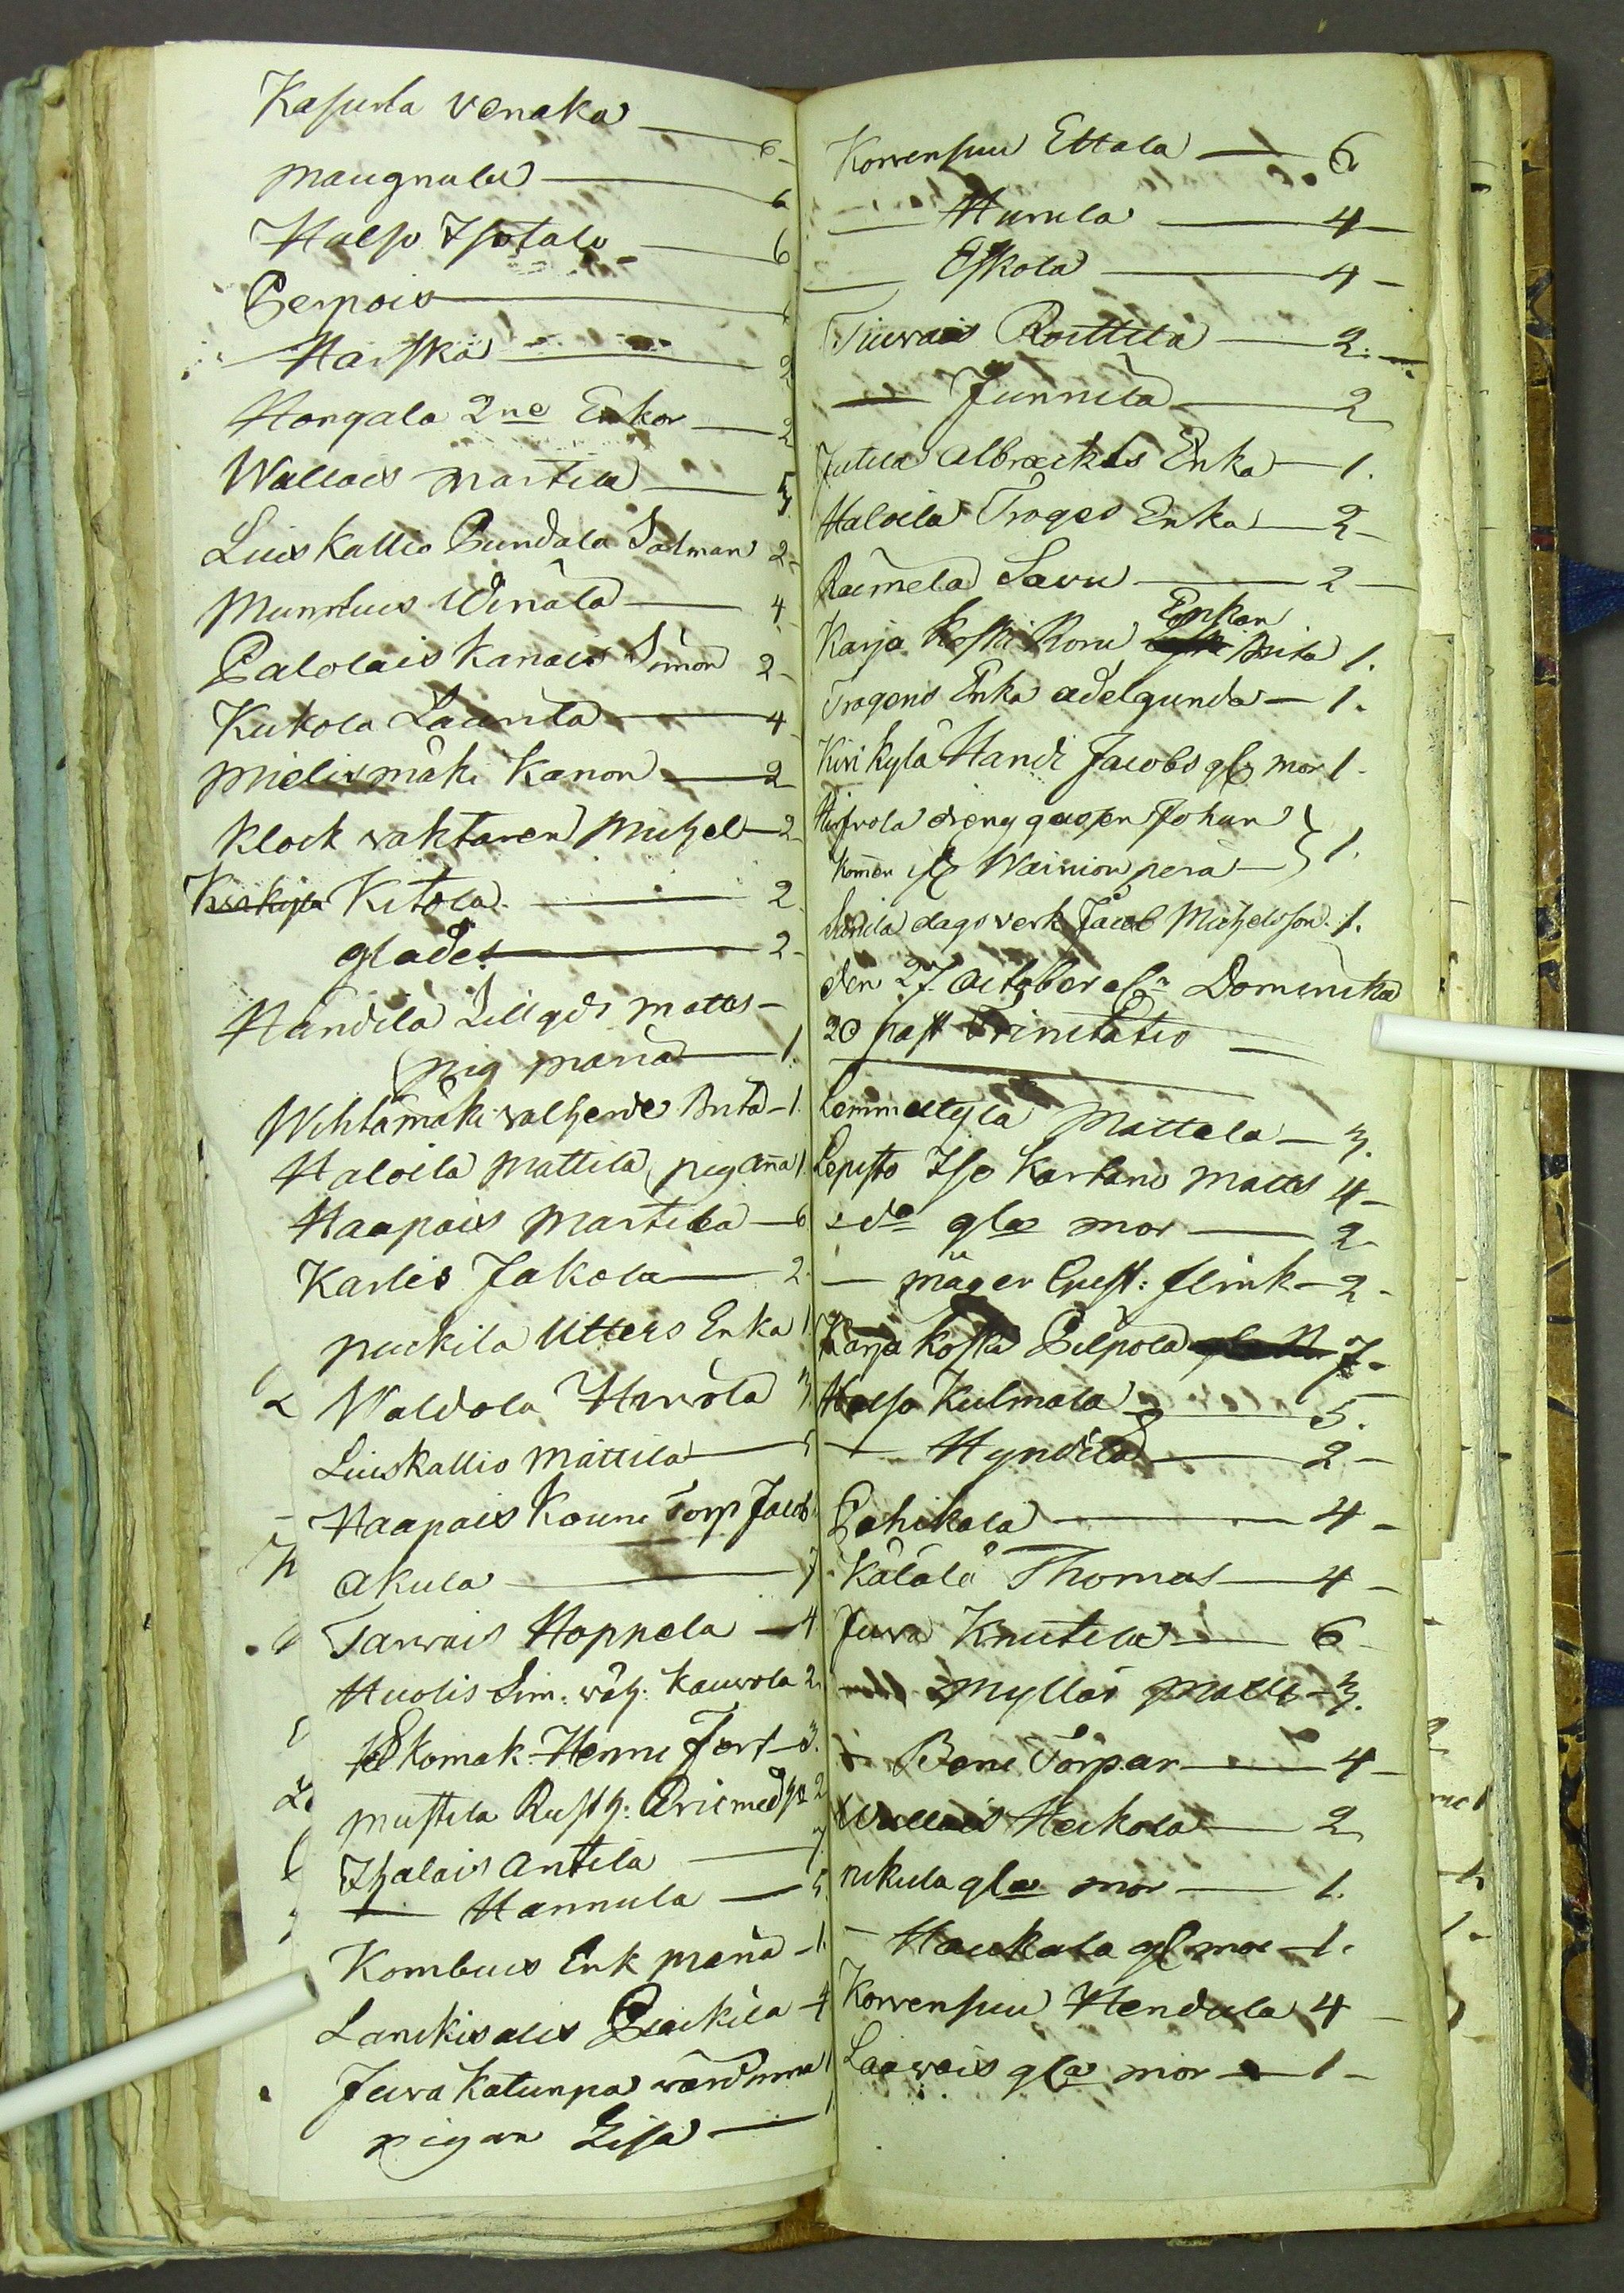 Kasurla venaka — 6-
maugnula — 6
Halso Isotalo — 6
Perpois —
— Harska — 2
Hongala 2ne Enkor — 2
Wallais martila — 5
Luis kallio Pundala Salman 2-
Munttuis Winala — 4
Palolais kanais Simon 2-
Kukola Laurila — 4
mielismäki kanon — 2
klock vaktaren Michel — 2
Kitola — 2
glades — 2-
Handila Lillgds matts —
pig maria — 1.
Wihtämäki valherde Brita — 1.
Haloila mattila pig aña 1.
Haapais martila — 6
Karlis Jakola — 2.
puckila Utters Enka 1.
Waldola Harvola 3.
Luiskallio Mattila — 5
Haapais Kouni Torp Jacob
akula — 7
Tarvais Hoppela — 4
Huolis Sim: väh: kauvola 2.
Skomak: Henne Fort — 3.
mustila Rusth: Eric med 2
Ihalais antila — 7.
— Hannula — 5.
Kombuis Enk maria — 1.
Lankisalis Puckila — 4
Juva katunpa värdinna 1
pigan Lisa — 1
Korvensuu Ettala — 6
— Hurula — 4 —
— Eskola — 4 —
Tiurais Roittila — 2. —
— Junnila — 2
Jutila albrecktts Enka — 1.
Haloila Troges Enka — 2 —
Raimela Savu — 2 —
Enkan
Karja koski Roru Brita 1.
Trogens Enka adelgunda — 1.
Kirikylä Handi Jacobs gl mor 1 -
dreng gaosen Johan } 1.
komen Wainion perä —
Sinila dagsverk Jacob Michelsson. 1.
den 27 October Dominika
20 past Trinitatis —
Lemmettylä Mattala — 3.
Lepisto Iso kartano matts 4 —
do gla mor — 2
— mäger Gust: flink — 2 -
Karja koski Pilpola 7 -
Halso Kulmala — 5.
— Hyndila — 2 —
Pahikala — 4 —
Kälälä Thomas — 4 —
Juva Knutila — 6 -
— Myllär Matts — 3.
— Beni Torpar — 4 —
Wallais Heikola — 2
nikula gla mor — 1.
— Haukala gl mor — 1.
Korvensuu Hendula 4 —
Laavais gla mor — 1 —